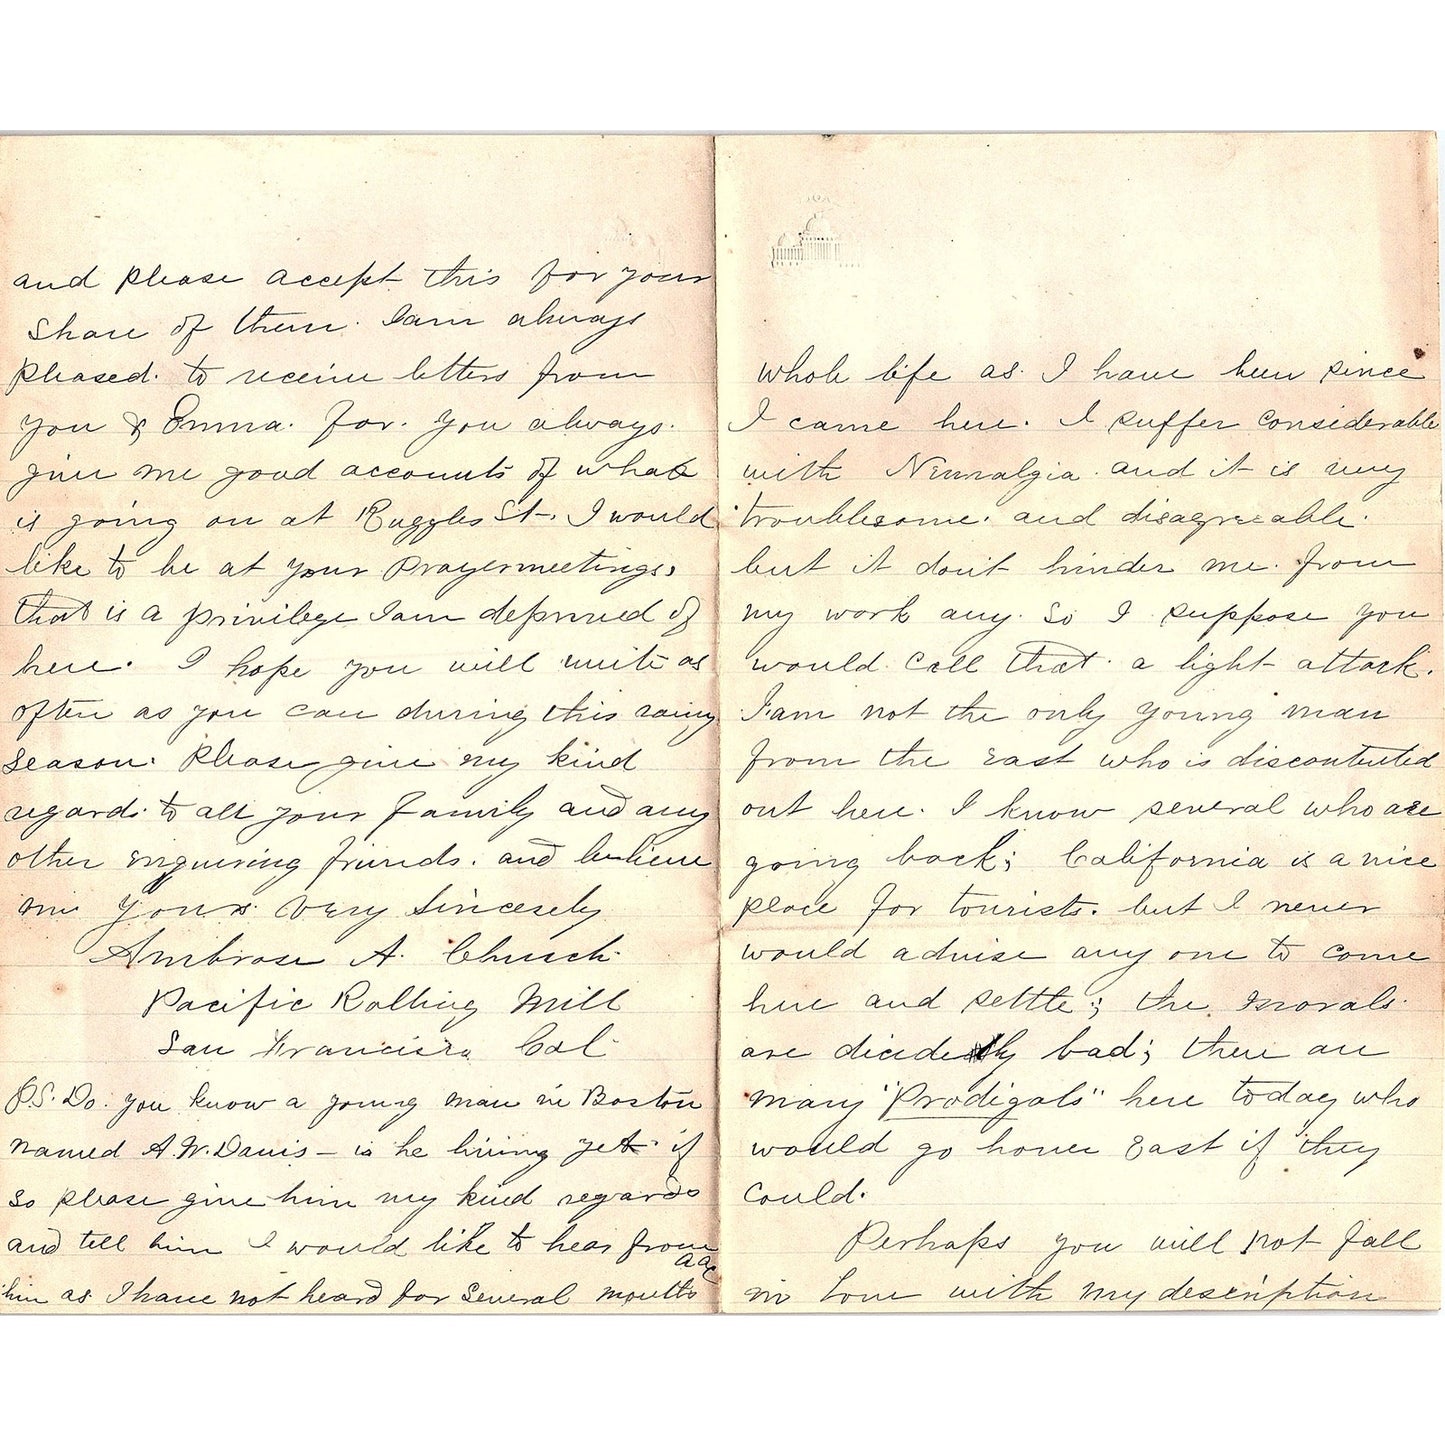 and please accept this for your
share of them. I am always
pleased. to receive letters from
you & Emma. for. you always.
give me good accounts of what
is going on at Ruggles St. I would
like to be at your prayermeetings,
that is a privilege I am deprived of
here. I hope you will write as
often as you can during this rainy
season. Please give my kind
regards to all your family and any
other enquiring friends. and believe
me yours very sincerely
Ambrose A. Church.
Pacific Rolling Mill
San Francisco Cal.
P.S. Do. you know a young man in Boston
named A.W. Davis – is he living yet. if
so please give him my kind regards
and tell him I would like to hear from
him as I have not heard for several months
AAC
whole life as. I have been since
I came here. I suffer considerable
with Neuralgia. and it is very
troublesome. and disagreeable.
but it don't hinder me. from
my work any. So I suppose you
would. call that. a light attack.
I am not the only young man
from the East who is discontented
out here. I know several who are
going back; California is a nice
place for tourists. but I never
would advise any one to come
here and settle; the. morals.
are dicidedly bad; there are
many "Prodigals" here today who
would go home East if they
could.
Perhaps you will not fall
in love with my description